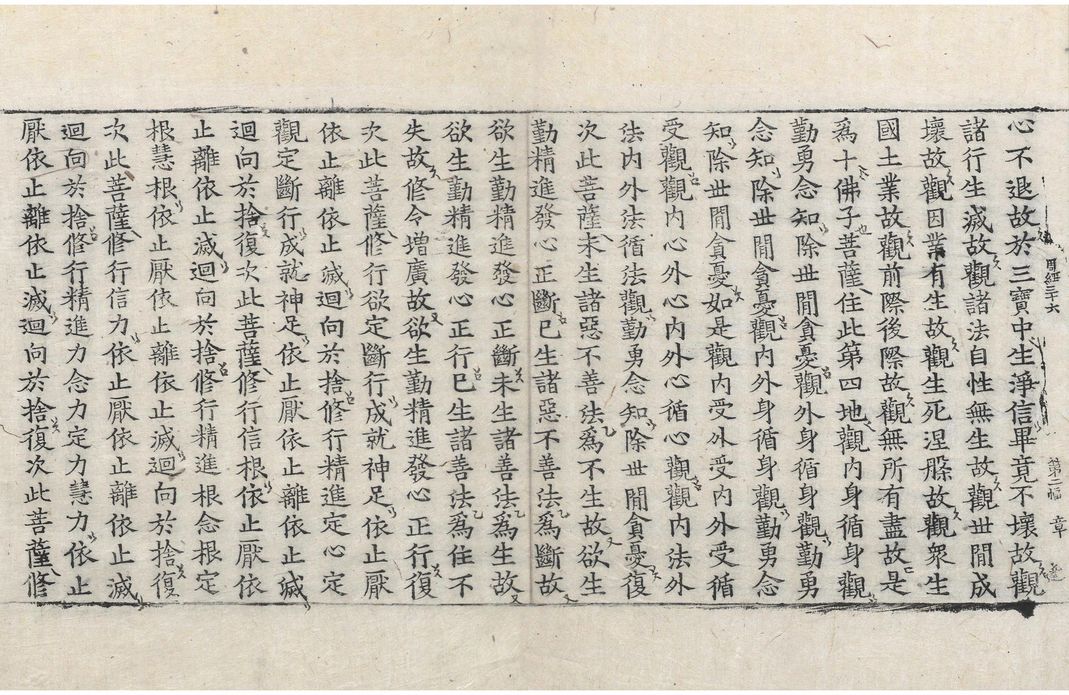 周經三十六 第二幅 章
心不退故於三寶中生淨信畢竟不壞故觀
諸行生滅故觀諸法自性無生故觀世閒成
壞故觀因業有生故觀生死涅槃故觀衆生
國土業故觀前際後際故觀無所有盡故是
爲十佛子菩薩住此第四地觀內身循身觀
勤勇念知除世閒貪憂觀外身循身觀勤勇
念知除世閒貪憂觀內外身循身觀勤勇念
知除世閒貪憂如是觀內受外受內外受循
受觀觀內心外心內外心循心觀觀內法外
法內外法循法觀勤勇念知除世閒貪憂復
次此菩薩未生諸惡不善法爲不生故欲生
勤精進發心正斷已生諸惡不善法爲斷故
欲生勤精進發心正斷未生諸善法爲生故
欲生勤精進發心正行已生諸善法爲住不
失故修令增廣故欲生勤精進發心正行復
次此菩薩修行欲定斷行成就神足依止厭
依止離依止滅迴向於捨修行精進定心定
觀定斷行成就神足依止厭依止離依止滅
迴向於捨復次此菩薩修行信根依止厭依
止離依止滅迴向於捨修行精進根念根定
根慧根依止厭依止離依止滅迴向於捨復
次此菩薩修行信力依止厭依止離依止滅
迴向於捨修行精進力念力定力慧力依止
厭依止離依止滅迴向於捨復次此菩薩修